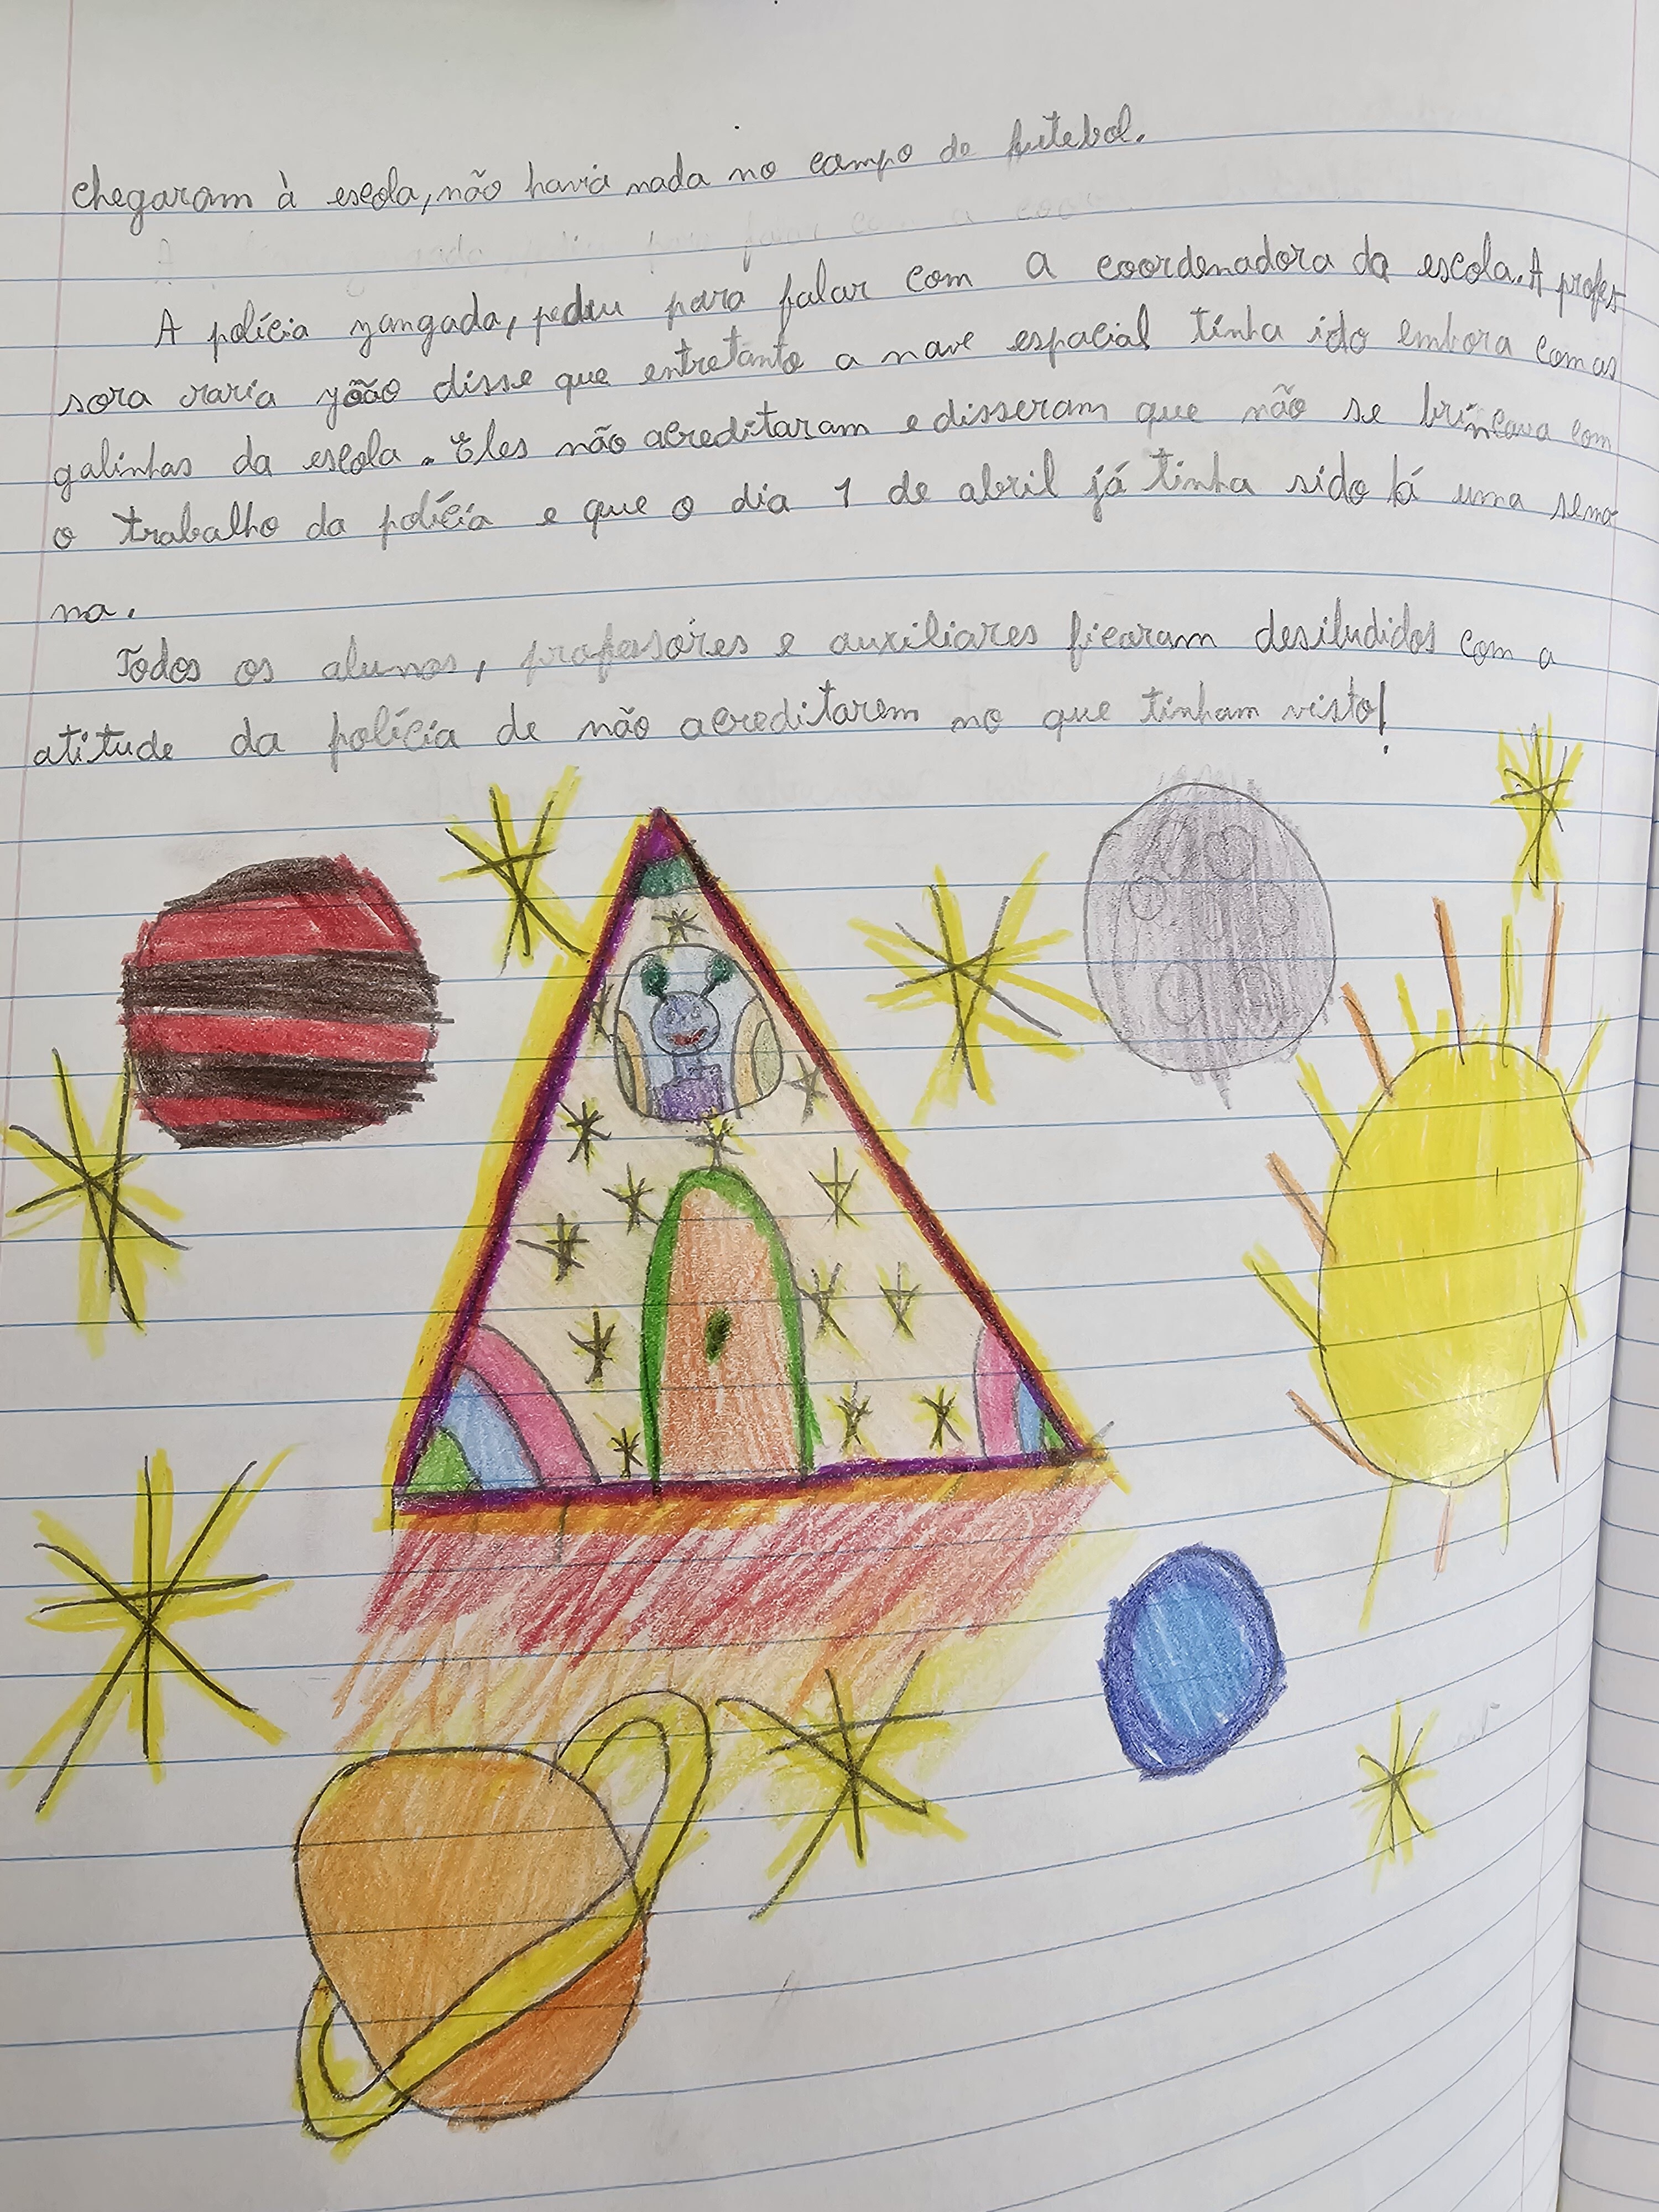 chegaram à escola, não havia nada no campo de futebol.
A polícia zangada, pediu para falar com a coordenadora da escola. A profes-
sora Maria João disse que entretanto a nave espacial tinha ido embora com as
galinhas da escola. Eles não acreditaram e disseram que não se brincava com
o trabalho da polícia e que o dia 1 de abril já tinha sido há uma sema-
na.
Todos os alunos, professores e auxiliares ficaram desiludidos com a
atitude da polícia de não acreditarem no que tinham visto!